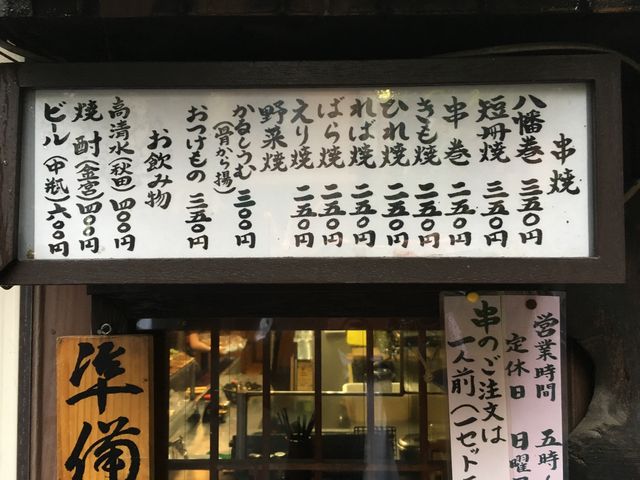 串焼
八幡巻 三五〇円
短冊焼 三五〇円
串巻 二五〇円
きも焼 二五〇円
ひれ焼 二五〇円
れば焼 二五〇円
ばら焼 二五〇円
えり焼 二五〇円
野菜焼
かるしうむ(骨から揚) 三〇〇円
おつけもの 三五〇円
お飲み物
高清水(秋田) 四〇〇円
焼酎(金宮) 四〇〇円
ビール(中瓶) 六〇〇円
営業時間 五時
定休日 日曜
串のご注文は
一人前(一セット
準備